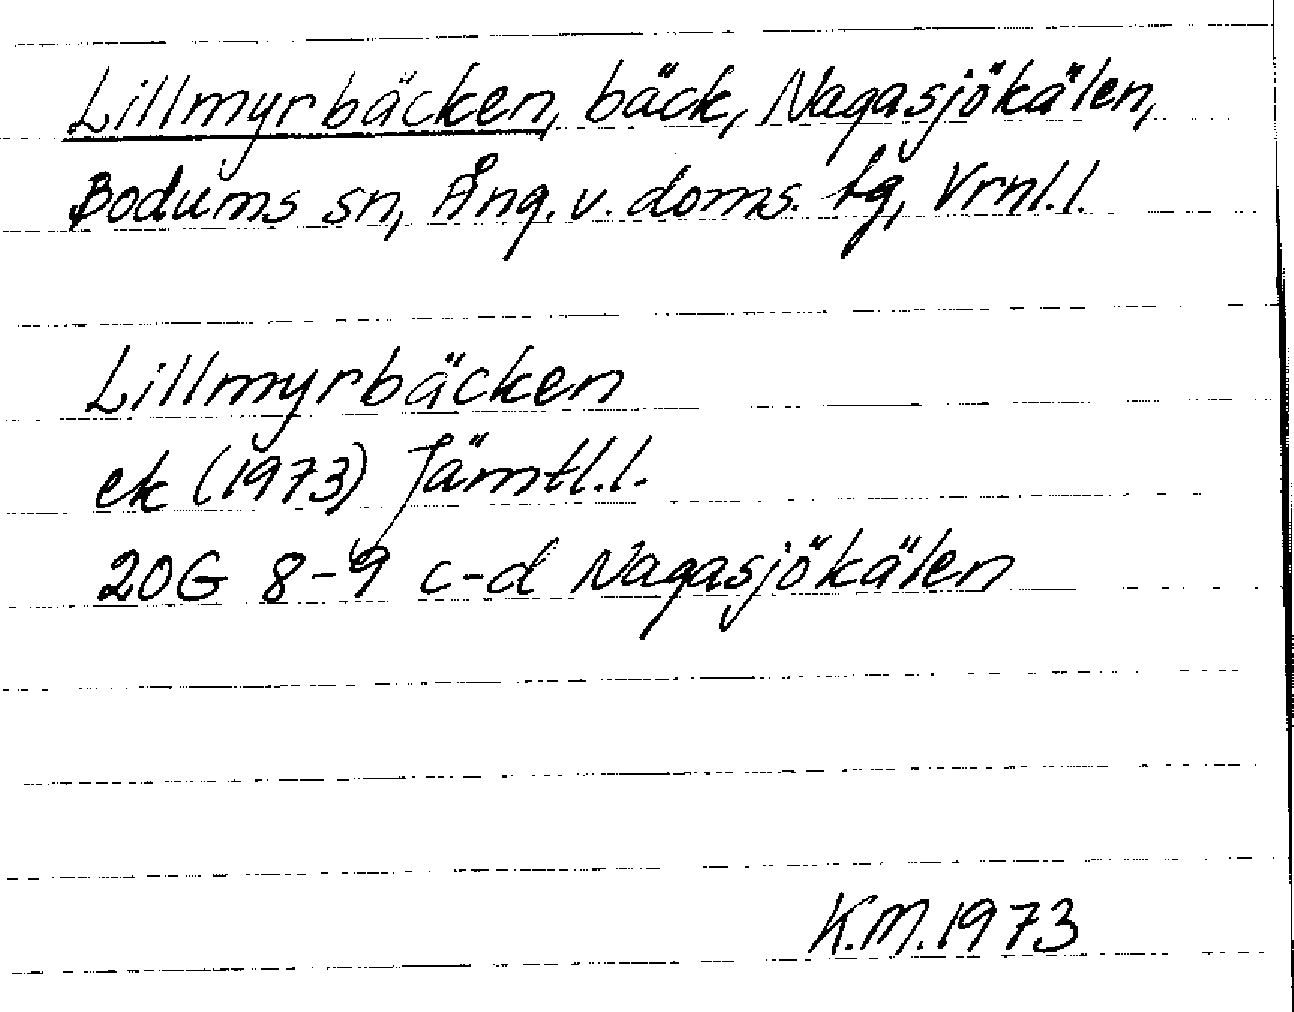 Lillmyrbäcken, bäck, Nagasjökälen,
Bodums sn, Ång. v. doms. tg, Vrnl.l.
Lillmyrbäcken
ek (1973) Jämtl.l.
20G 8-9 c-d Nagasjökälen
K.M.1973